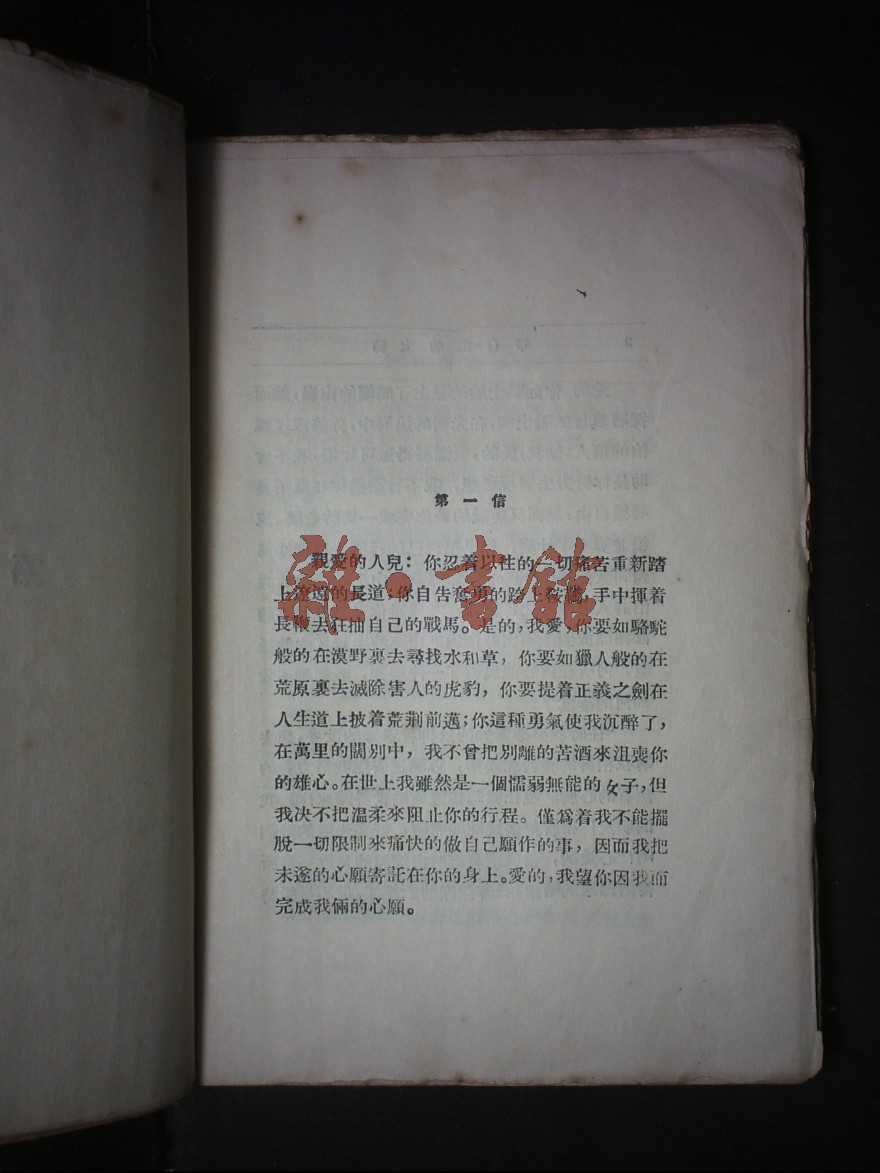 第一信
親愛的人兒：你忍着以往的一切痛苦重新踏
上遼遠的長道；你自告奮勇的跨上鞍韉，手中揮着
長鞭去狂抽自己的戰馬。是的，我愛，你要如駱駝
般的在漠野裏去尋找水和草，你要如獵人般的在
荒原裏去滅除害人的虎豹，你要提着正義之劍在
人生道上披着荒荆前邁；你這種勇氣使我沉醉了，
在萬里的闊別中，我不曾把別離的苦酒來沮喪你
的雄心。在世上我雖然是一個懦弱無能的女子，但
我决不把溫柔來阻止你的行程。僅爲着我不能擺
脫一切限制來痛快的做自己願作的事，因而我把
未遂的心願寄託在你的身上。愛的，我望你因我而
完成我倆的心願。
雜·書館